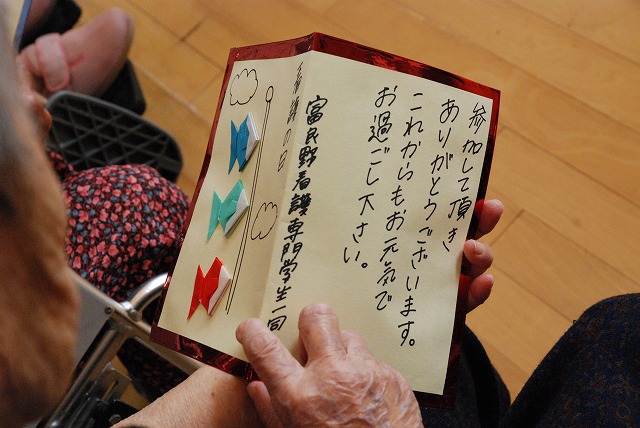 参加して頂き
ありがとうございます。
これからもお元気で
お過ごし下さい。
富良野看護専門学生一同
看護の日